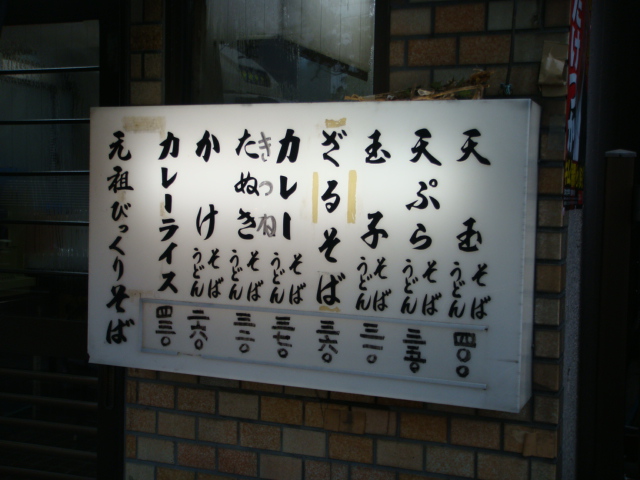 天玉そばうどん 四〇〇
天ぷらそばうどん 三五〇
玉子そばうどん 三一〇
ざるそば 三六〇
カレーそばうどん 三七〇
きつね
たぬきそばうどん 三二〇
かけそばうどん 二六〇
カレーライス 四三〇
元祖びっくりそば